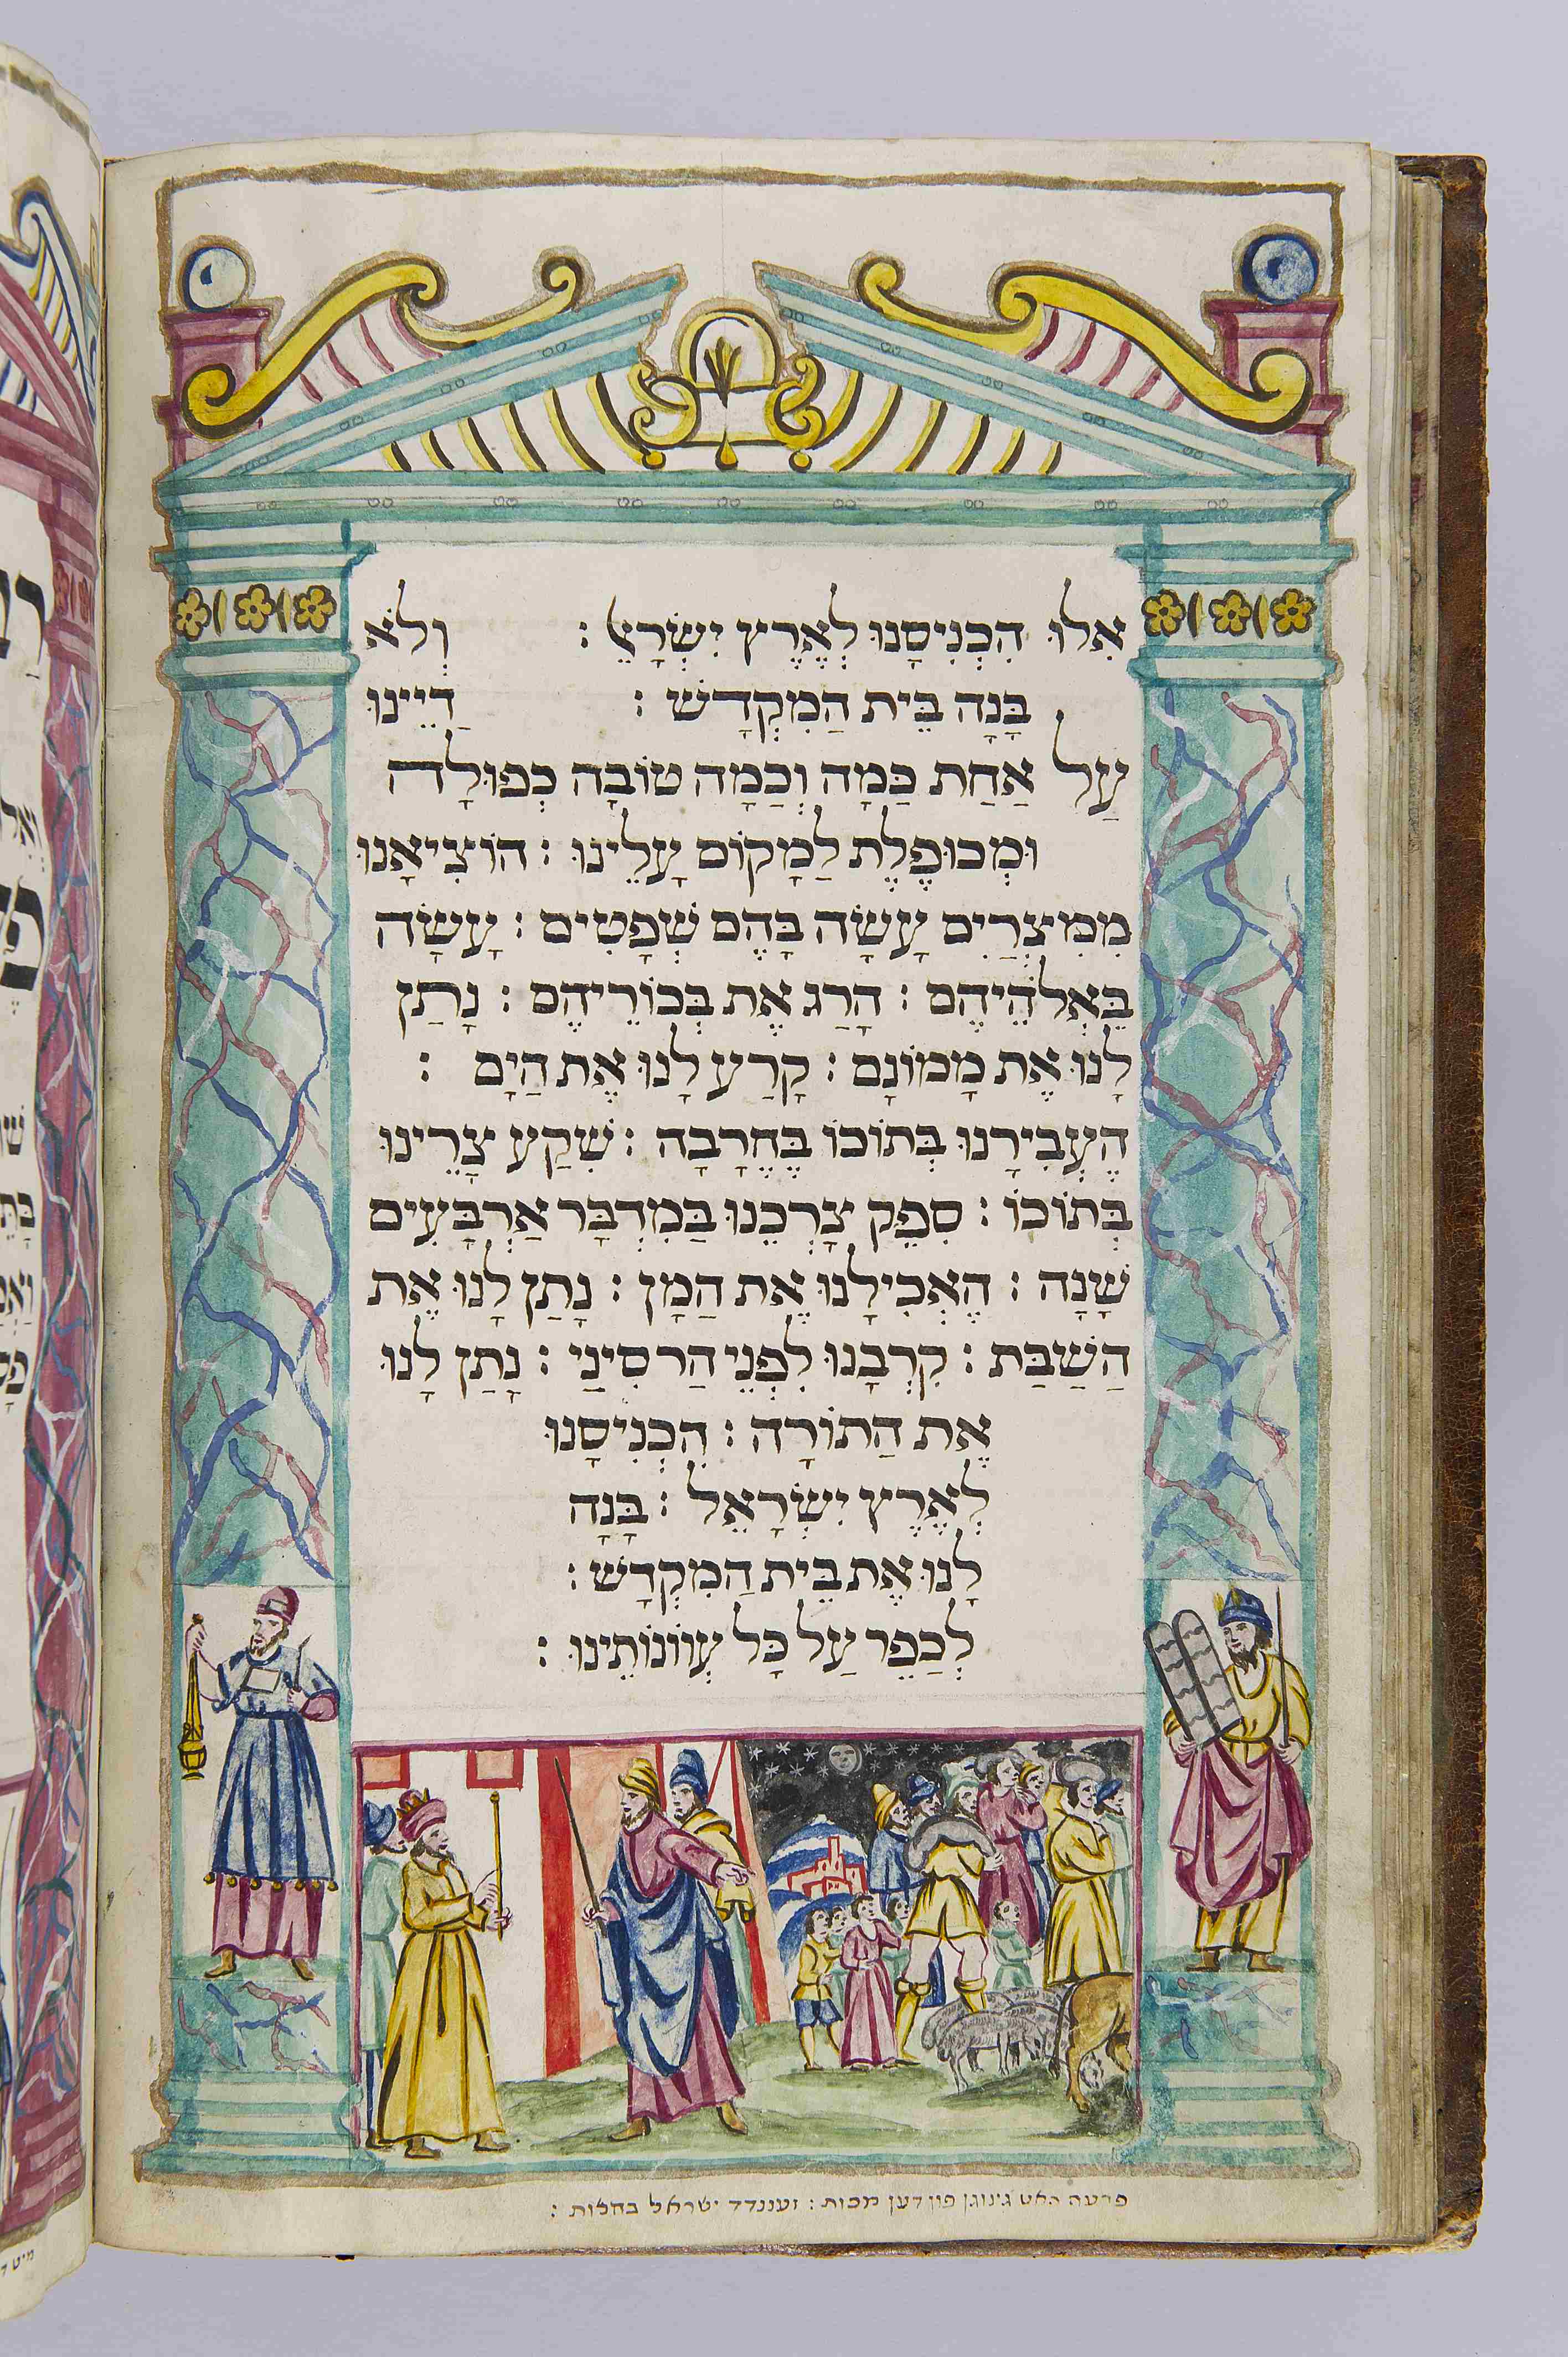 אִלוּ הִכְנִיסָנוּ לְאֶרֶץ יִשְׂרָאֵל : וְלֹא
בָּנָה בֵּית הַמִקְדָשׁ : דַיֵינוּ
עַל אַחַת כַּמָה וְכַמָה טוֹבָה כְפוּלָה
וּמְכוּפֶלֶת לַמָקוֹם עָלֵינוּ : הוֹצִיאָנוּ
מִמִצְרַיִם עָשָׂה בָּהֶם שְׁפָטִים : עָשָׂה
בֵּאְלֹהֵיהֶם : הָרַג אֶת בְּכוֹרֵיהֶם : נָתַן
לָנוּ אֶת מָמוֹנָם : קָרַע לָנוּ אֶת הַיָם :
הֶעְבִירָנוּ בְּתוֹכוֹ בֶּחֶרָבָה : שִׁקַע צָרֵינוּ
בְּתוֹכוֹ : סִפֵק צָרְכֵנוּ בַּמִדְבָּר אַרְבָּעִים
שָׁנָה : הֶאְכִילָנוּ אֶת הַמָן : נָתַן לָנוּ אֶת
הַשַׁבַּת : קִרְבָנוּ לִפְנֵי הַר סִינַי : נָתַן לָנוּ
אֶת הַתוֹרָה : הִכְנִיסָנוּ
לְאֶרֶץ יִשְׂרָאֵל : בָּנָה
לָנוּ אֶת בֵּית הַמִקְדָשׁ :
לְכַפֵר עַל כָּל עֲוֹנוֹתֵינוּ :
פרעה האט גינוגן פון דען מכות : ישראל בחלות :